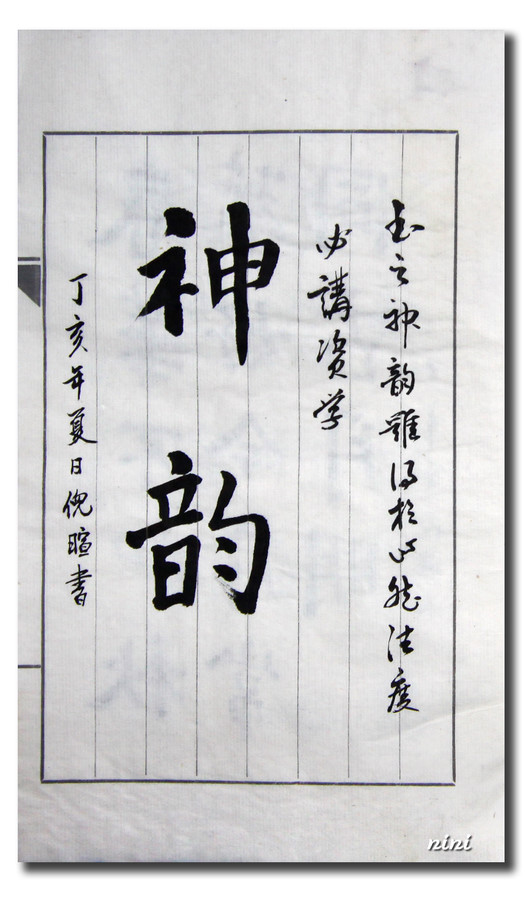 书之神韵雖得於心然法度
必講資学
神韵
丁亥年夏日倪暄書
nini